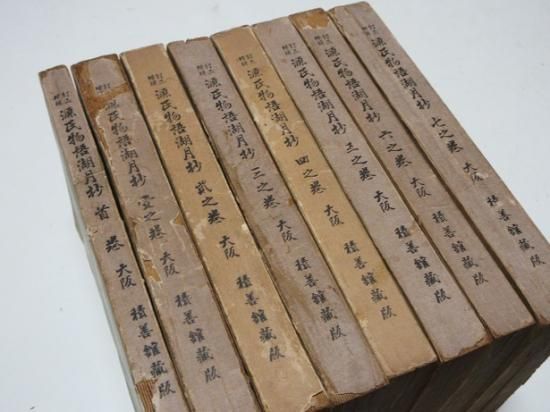 訂正
増註
源氏物語湖月抄 首卷 大阪 積善館藏版
訂正
増註
源氏物語湖月抄 壹之卷 大阪 積善館藏版
訂正
増註
源氏物語湖月抄 貳之卷 大阪 積善館藏版
訂正
増註
源氏物語湖月抄 三之卷 大阪 積善館藏版
訂正
増註
源氏物語湖月抄 四之卷 大阪 積善館藏版
訂正
増註
源氏物語湖月抄 之卷 大阪 積善館藏版
訂正
増註
源氏物語湖月抄 六之卷 大阪 積善館藏版
訂正
増註
源氏物語湖月抄 七之卷 大阪 積善館藏版